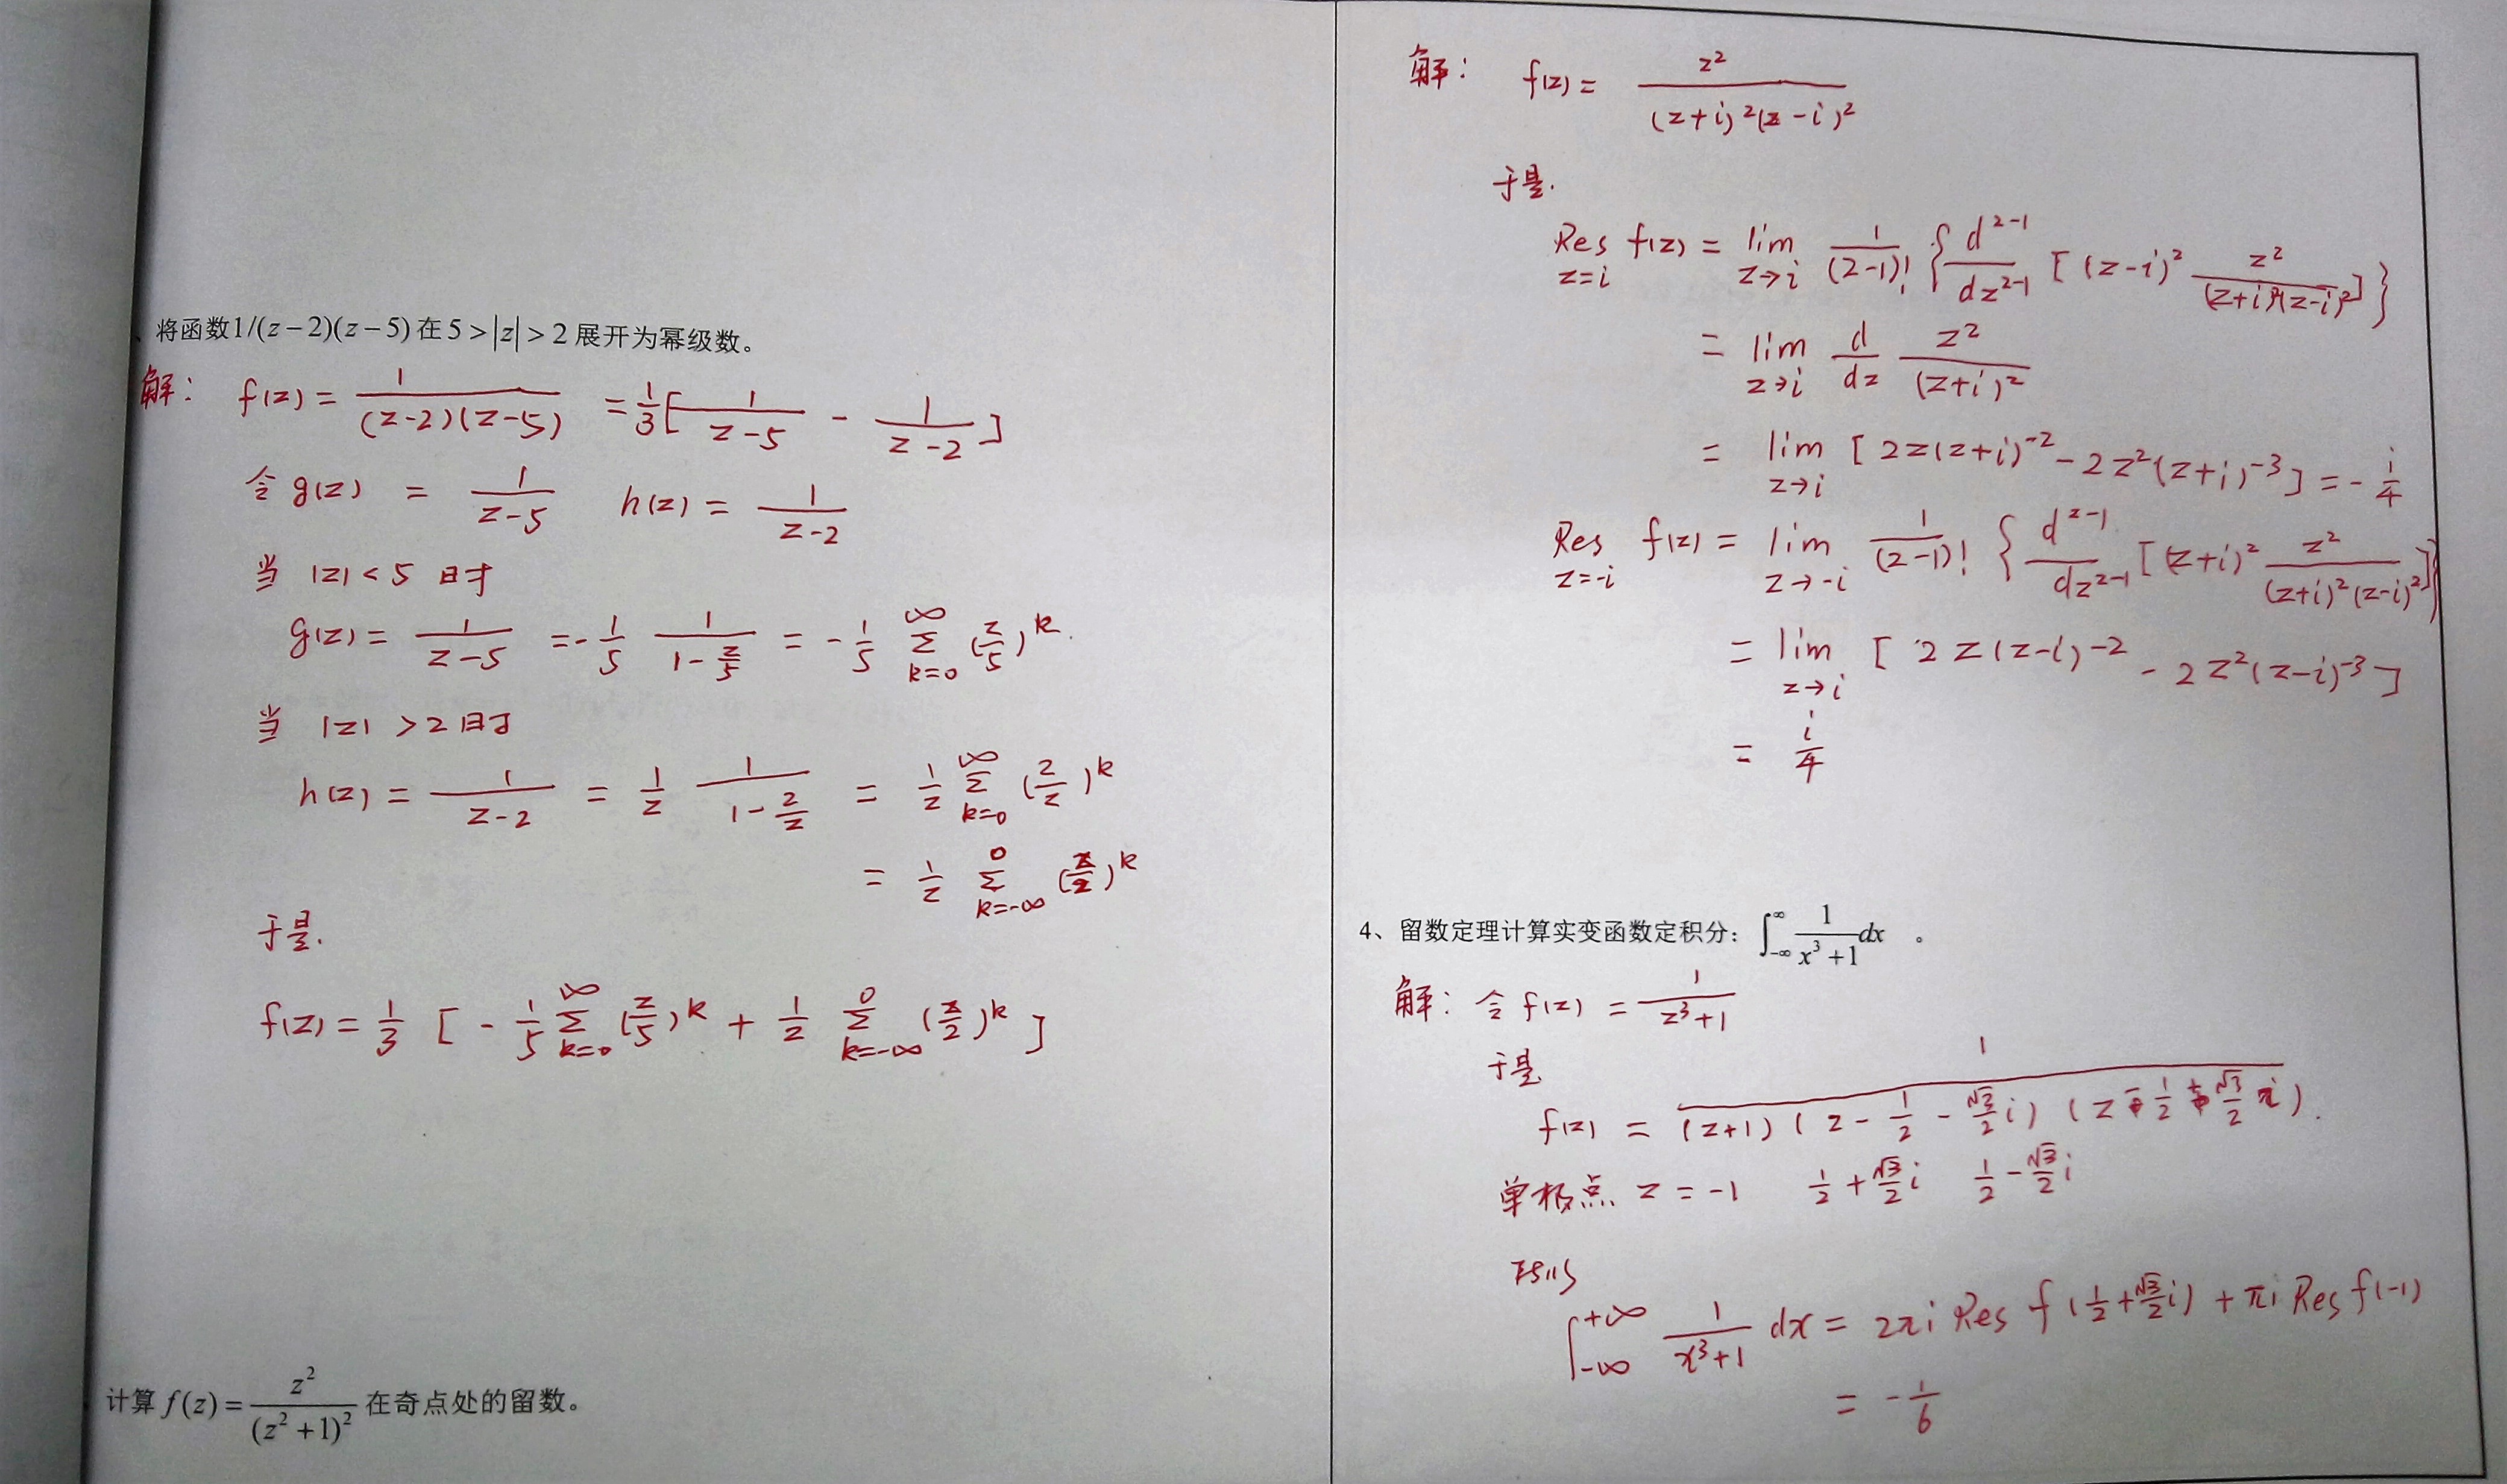 、将函数1/(z-2)(z-5)在5>|z|>2展开为幂级数。
解: f(z) = 1/((z-2)(z-5)) = 1/3[1/(z-5) - 1/(z-2)]
令g(z) = 1/(z-5) h(z) = 1/(z-2)
当 |z|<5 时
g(z) = 1/(z-5) = -1/5 1/(1-z/5) = -1/5 ∑_{k=0}^{∞} (z/5)^k.
当 |z|>2时
h(z) = 1/(z-2) = 1/z 1/(1-2/z) = 1/z ∑_{k=0}^{∞} (2/z)^k
= 1/z ∑_{k=-∞}^{0} (z/2)^k
于是.
f(z) = 1/3 [-1/5 ∑_{k=0}^{∞} (z/5)^k + 1/2 ∑_{k=-∞}^{0} (z/2)^k]
计算 f(z) = z²/(z²+1)² 在奇点处的留数。
解: f(z) = z²/((z+i)²(z-i)²)
于是.
Res_{z=i} f(z) = lim_{z→i} 1/(2-1)! {d^{2-1}/dz^{2-1} [(z-i)² z²/((z+i)²(z-i)²)]}
= lim_{z→i} d/dz z²/(z+i)²
= lim_{z→i} [2z(z+i)^{-2} - 2z²(z+i)^{-3}] = -i/4
Res_{z=-i} f(z) = lim_{z→-i} 1/(2-1)! {d^{2-1}/dz^{2-1} [(z+i)² z²/((z+i)²(z-i)²)]}
= lim_{z→i} [2z(z-i)^{-2} - 2z²(z-i)^{-3}]
= i/4
4、留数定理计算实变函数定积分: ∫_{-∞}^{∞} 1/(x³+1) dx 。
解: 令f(z) = 1/(z³+1)
于是
f(z) = 1/((z+1)(z-1/2-√3/2 i)(z-1/2+√3/2 i)).
单极点 z=-1 1/2+√3/2 i 1/2-√3/2 i
∫_{-∞}^{+∞} 1/(x³+1) dx = 2πi Res f(1/2+√3/2 i) + πi Res f(-1)
= -1/6